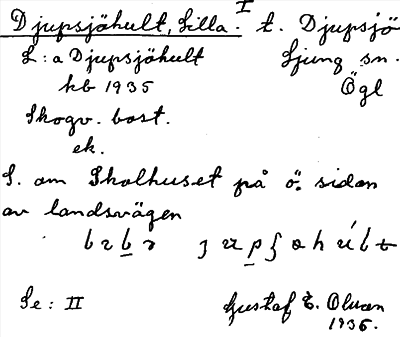 Djupsjöhult, Lilla. I t. Djupsjö
L:a Djupsjöhult Ljung sn.
kb 1935 Ögl
Skogv. bost.
ek.
S. om Skolhuset på ö. sidan
av landsvägen
Se: II Gustaf E. Olsson
1935.